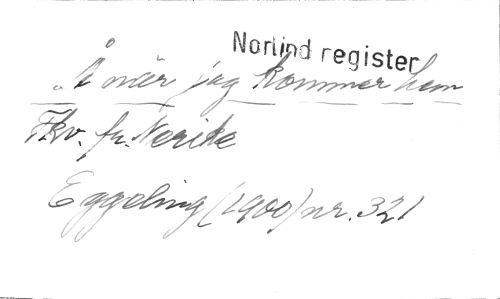 Norlind register
Å
„Å när jag kommer hem
Fkv. fr. Nerike
Eggeling (1900) nr. 321